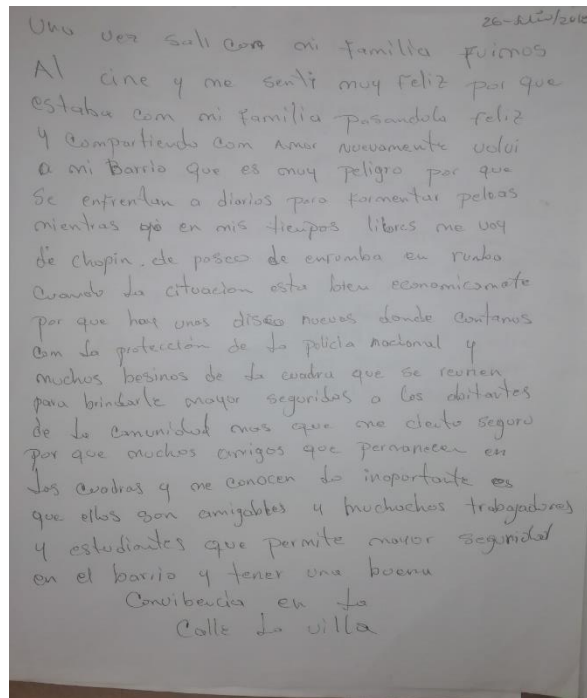 26-Julio/2016
Una vez sali com mi familia fuimos
Al cine y me senti muy feliz por que
estaba com mi familia pasandola feliz
y compartiendo com Amor nuevamente volvi
a mi Barrio que es muy peligro por que
se enfrentan a diarios para formentar peleas
mientras yo en mis tiempos libres me voy
de chopin. de paseo de enrumba en rumba
cuando la cituacion esta bien economicamate
por que hay unas disco nuevas donde contamos
com la protección de la policia nacional y
muchos besinos de la cuadra que se reunen
para brindarle mayor seguridas a los abitantes
de la comunidad mas que me ciento seguro
por que muchos amigos que permanecen en
las cuadras y me conocen lo inoportante es
que ellos son amigables y muchachos trabajadores
y estudiantes que permite mayor seguridad
en el barrio y tener una buena
Convibencia en la
Calle la villa